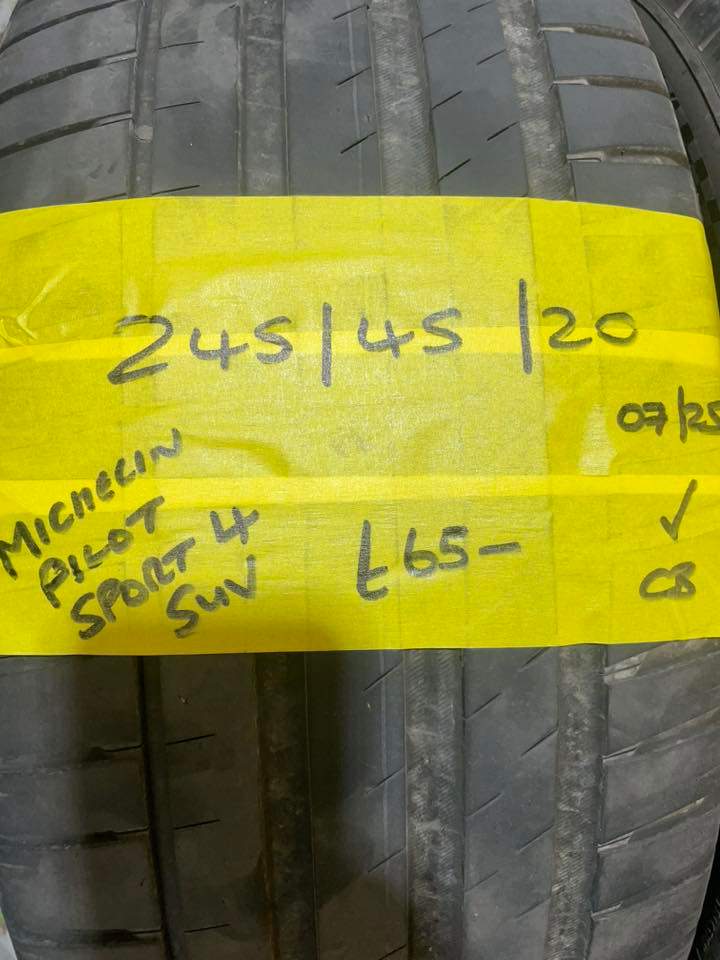 245/45/20
07/25
MICHELIN
PILOT
SPORT 4
SUV
£65-
✓
CB